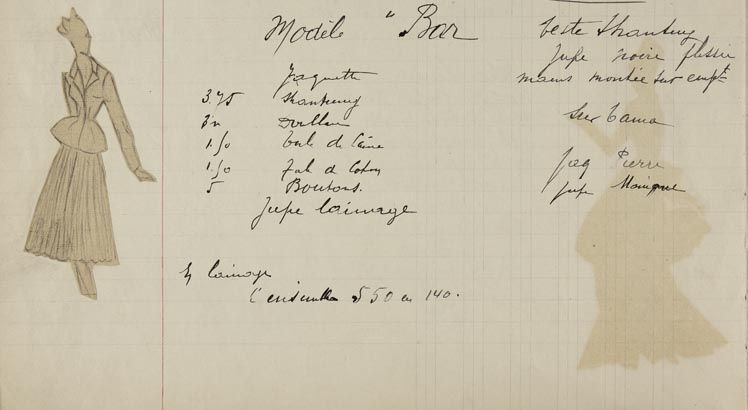 Modèle "Bar
Jaquette
3.75 Shantung
1.50 tule de
1.50 de Coton
5 Boutons.
Jupe lainage
lainage
l'ensemble 550 en 140.
Veste Shantung
Jupe noire
mains montée sur
Sur Tania
Jaq Pierre
Jupe Monique